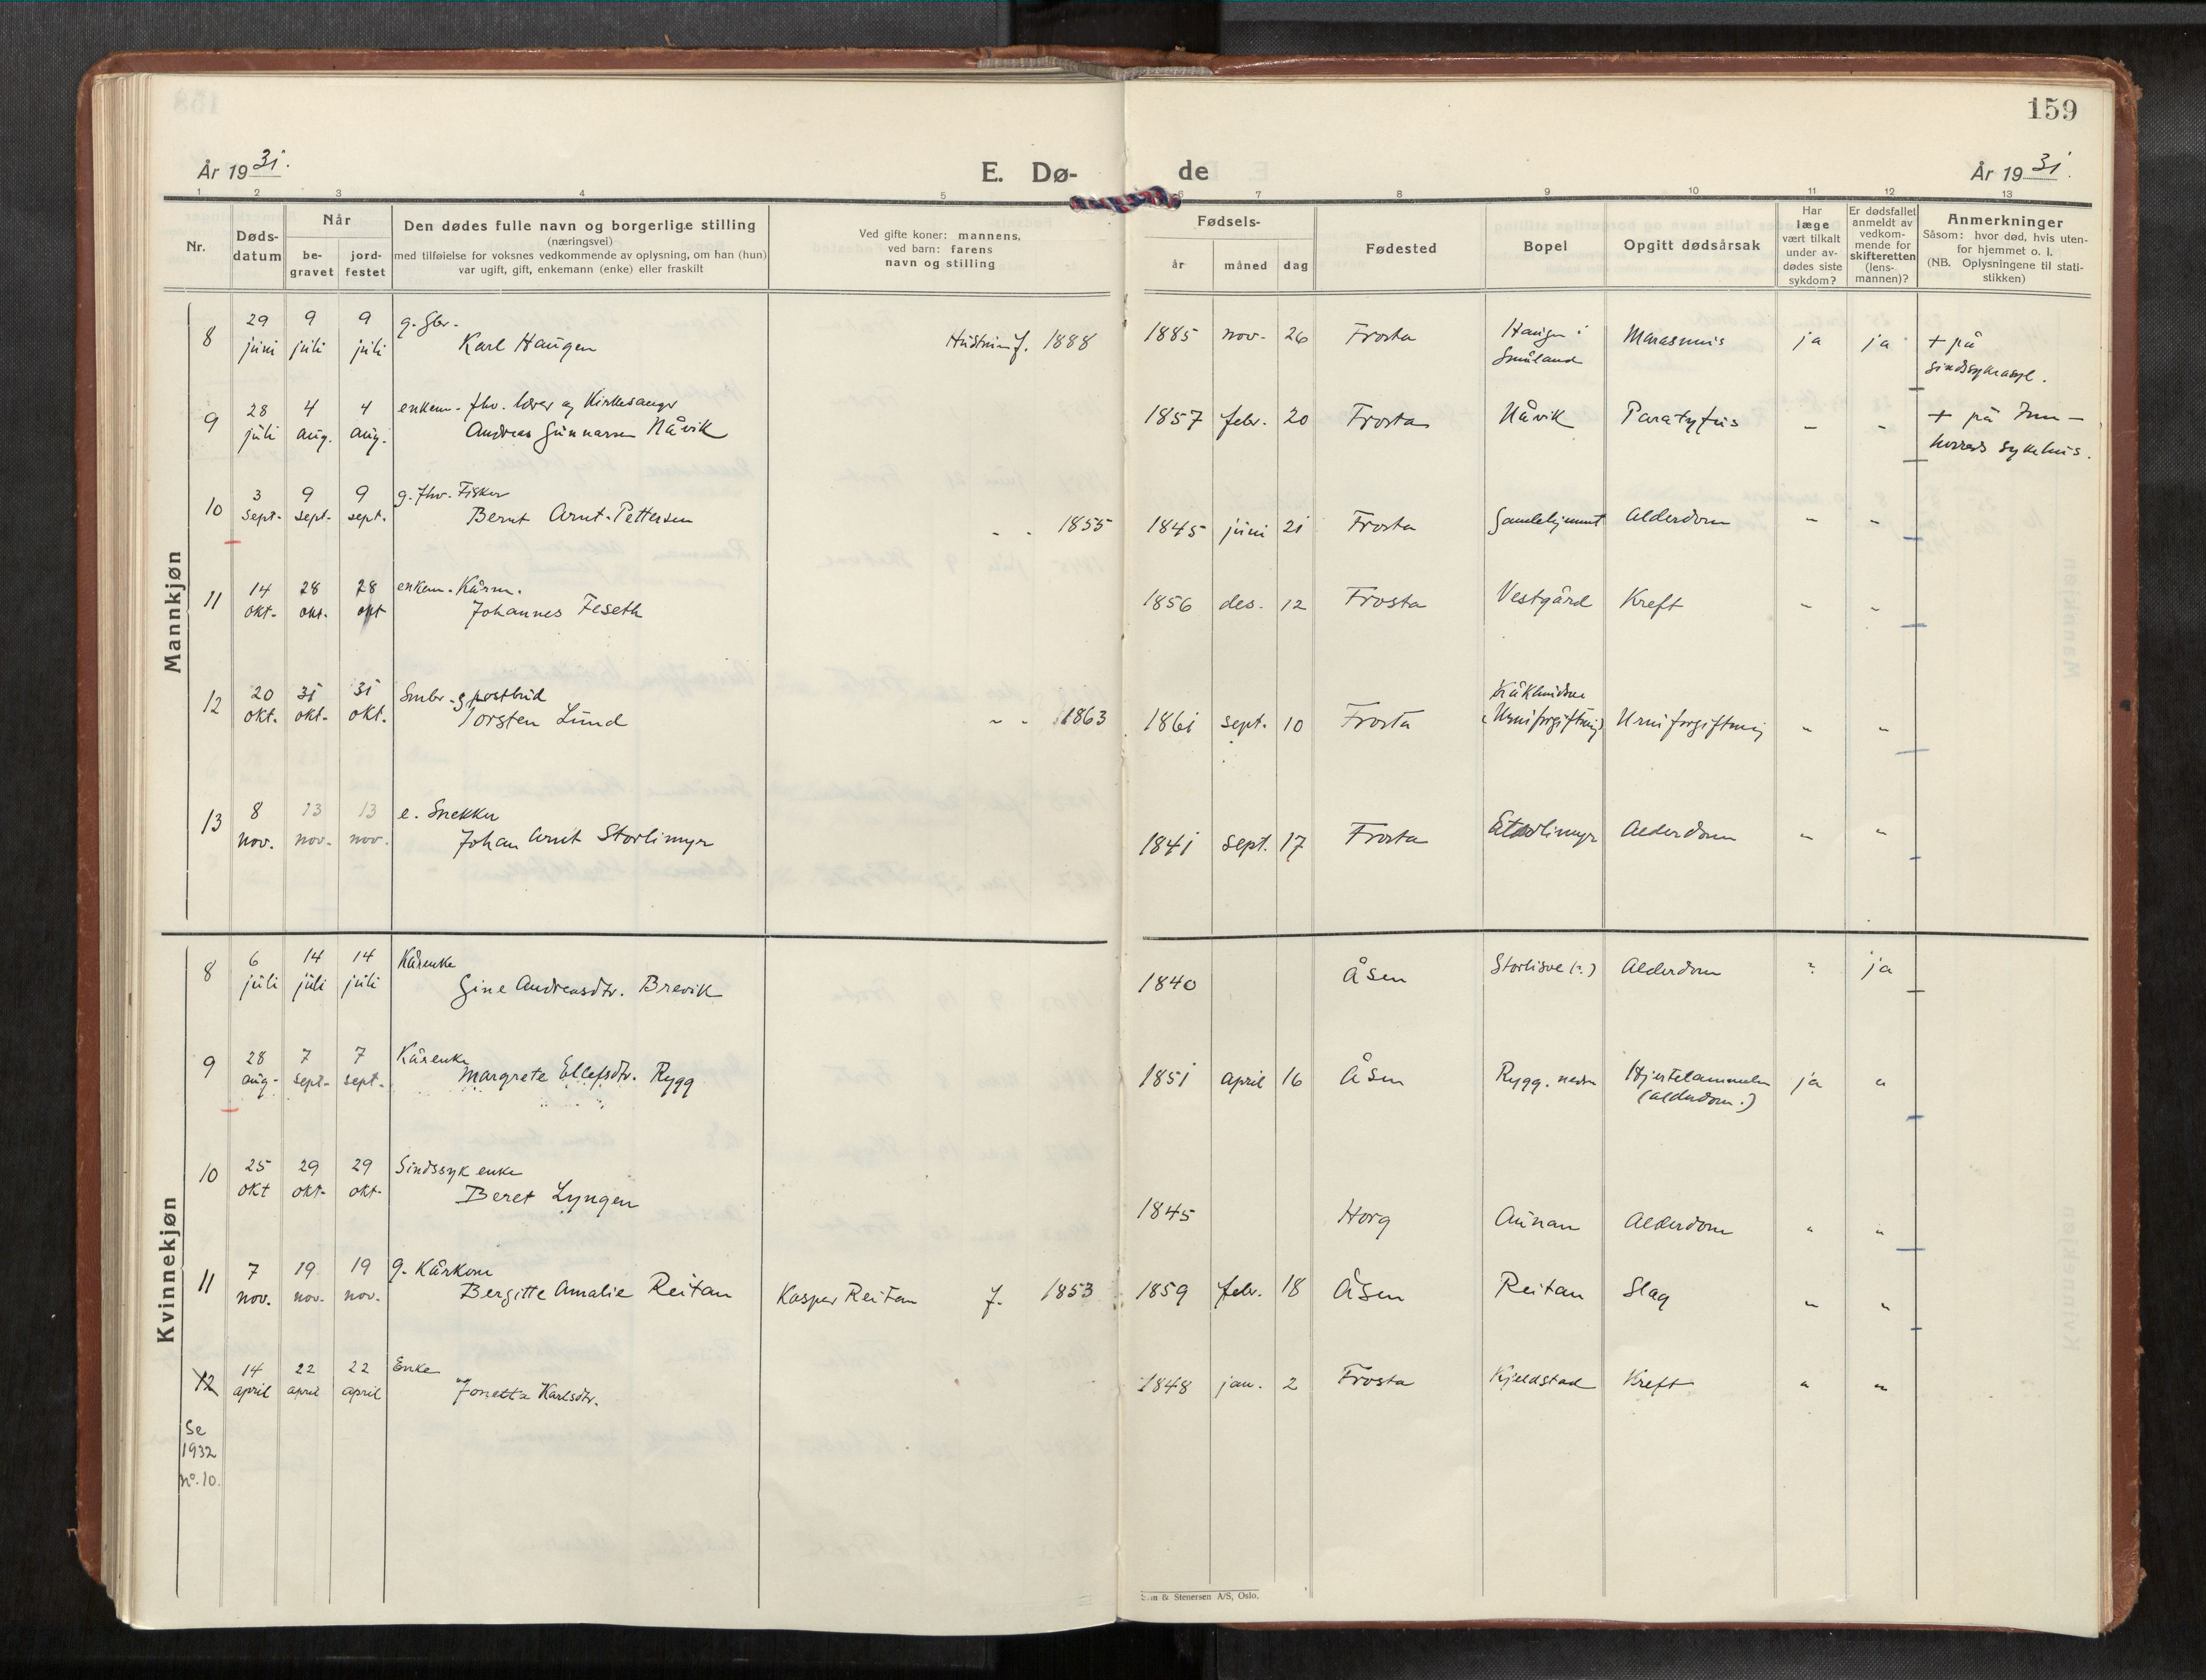 159
År 1931.
E. Dø-
de
År 1931.
1 2 3 4 5 6 7 8 9 10 11 12 13
Nr.
Døds-
datum
Når
be-
gravet
jord-
festet
Den dødes fulle navn og borgerlige stilling
(næringsvei)
med tilføielse for voksnes vedkommende av oplysning, om han (hun)
var ugift, gift, enkemann (enke) eller fraskilt
Ved gifte koner: mannens,
ved barn: farens
navn og stilling
Fødsels-
år
måned
dag
Fødested
Bopel
Opgitt dødsårsak
Har
læge
vært tilkalt
under av-
dødes siste
sykdom?
Er dødsfallet
anmeldt av
vedkom-
mende for
skifteretten
(lens-
mannen)?
Anmerkninger
Såsom: hvor død, hvis uten-
for hjemmet o. l.
(NB. Oplysningene til stati-
stikken)
Mannkjøn
8 29 juni 9 juli 9 juli g. gbr.
Karl Haugen Hustruen f. 1888 1885 nov. 26 Frosta Haugen i
Småland Marasmus ja ja + på
sindssykeasyl.
9 28 juli 4 aug. 4 aug. enkem. fhv. lærer og Kirkesanger
Andreas Gunnarsen Nåvik 1857 febr. 20 Frosta Nåvik Paratyfus - - + på Inn-
herreds sykehus.
10 3 sept. 9 sept. 9 sept. g. fhv. Fisker
Bernt Arnt Pettersen - - 1855 1845 juni 21 Frosta Gamlehjemmet Alderdom - -
11 14 okt. 28 okt. 28 okt enkem. Kårm.
Johannes Feseth 1856 des. 12 Frosta Vestgård Kreft - -
12 20 okt. 31 okt. 31 okt. Smbr. g postbud
Torsten Lund - - 1863 1861 sept. 10 Frosta
(Urinforgiftning) Urinforgiftning - -
13 8 nov. 13 nov. 13 nov. e. Snekker
Johan Arnt Storlimyr 1841 sept. 17 Frosta Storlimyr Alderdom - "
Kvinnekjøn
8 6 juli 14 juli 14 juli Kårenke
Gine Andreasdtr. Brevik 1840 Åsen Storlisve (?) Alderdom ? ja
9 28 aug. 7 sept. 7 sept. Kårenke
Margrete Ellefsdtr. Rygg 1851 april 16 Åsen Rygg, nedre Hjertelammelse
(alderdom.) ja "
10 25 okt 29 okt. 29 okt. Sindssyk enke
Beret Lyngen 1845 Horg Aunan Alderdom " "
11 7 nov. 19 nov. 19 nov. g. Kårkone
Bergitte Amalie Reitan Kasper Reitan f. 1853 1859 febr. 18 Åsen Reitan Slag " "
12 14 april 22 april 22 april Enke
Jonetta Karlsdtr. 1848 jan. 2 Frosta Kjeldstad Kreft " "
Se
1932
nº. 10.
& Stenersen A/S, Oslo.